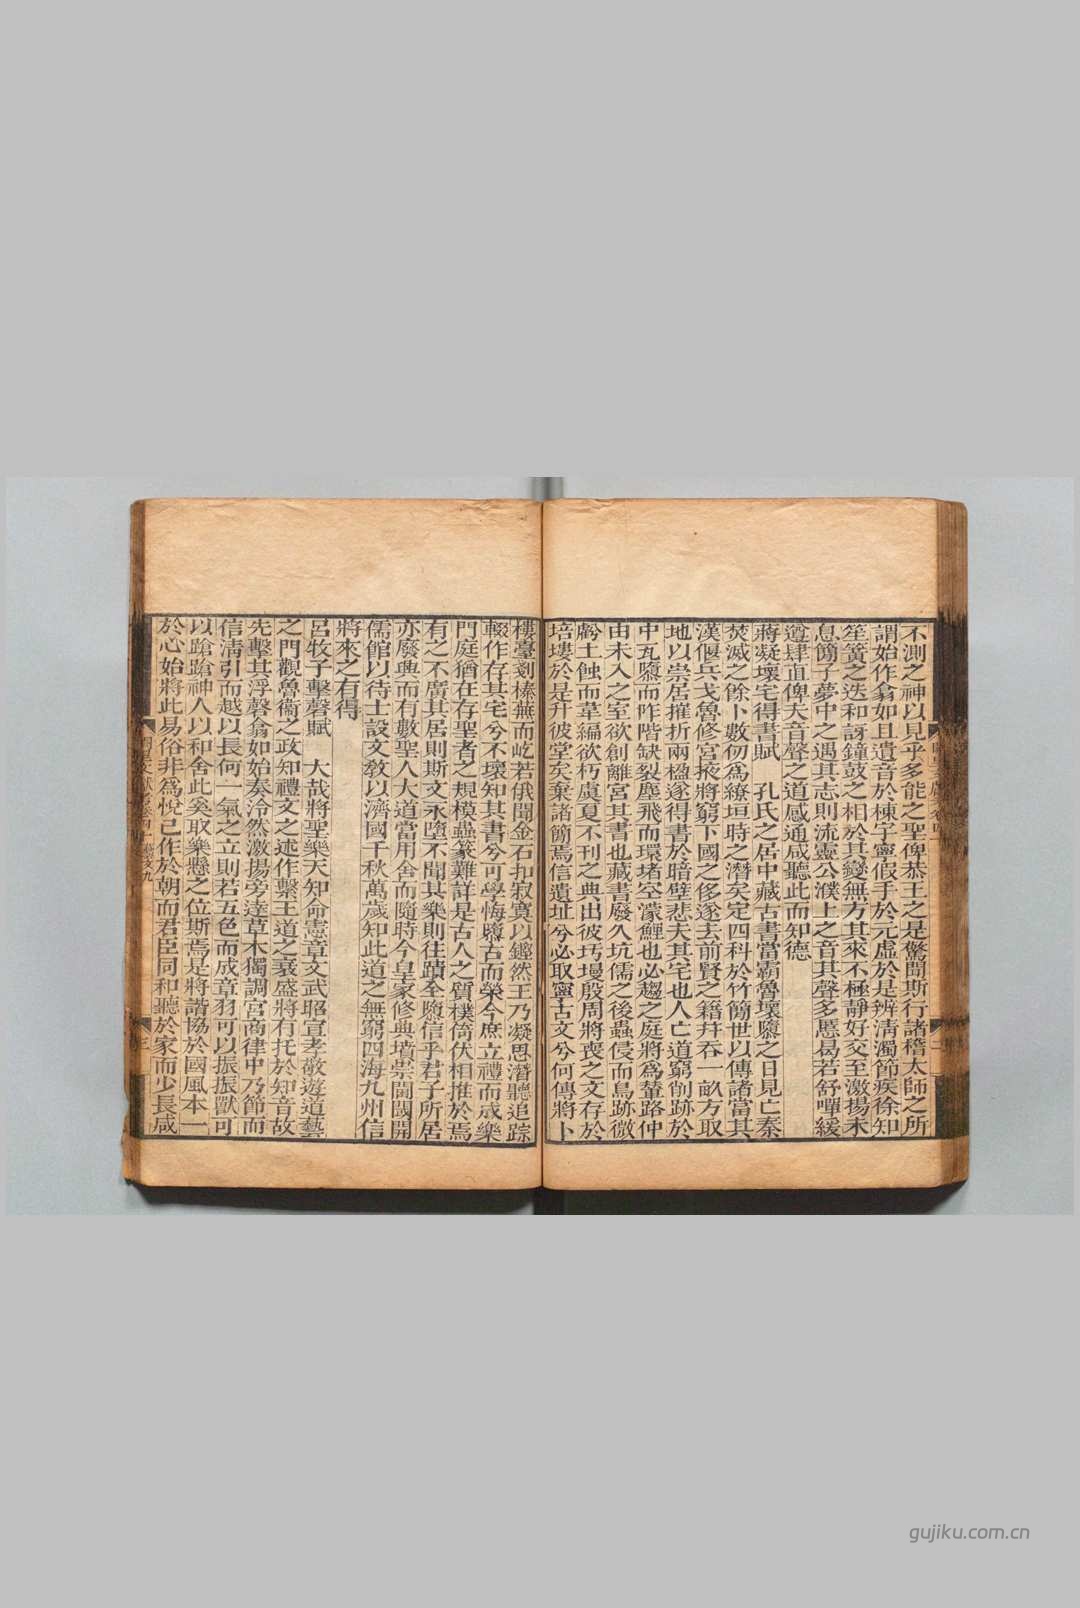 不測之神以見乎多能之聖俾恭王之是驚聞斯行諸稽太師之所
謂始作翕如且遺音於棟宇寧假手於元虛於是辨清濁節疾徐知
笙簧之迭和訝鐘鼓之相於其變無方其來不極靜好交至激揚未
息簡子夢中之遇其志則流靈公濮上之音其聲多慝曷若舒嘽緩
遵肆直俾大音聲之道感通咸聽此而知德
蔣凝壞宅得書賦 孔氏之居中藏古書當霸魯壞隳之日見亡秦
焚滅之餘卜數仞為繚垣時之潛矣定四科於竹簡世以傳諸當其
漢偃兵戈魯修宮掖將窮下國之侈遂去前賢之籍幷吞一畝方取
地以崇居摧折兩楹遂得書於暗壁悲夫其宅也人亡道窮削跡於
中瓦隳而阼階缺裂塵飛而環堵空濛鯉也必趨之庭將為輦路仲
由未入之室欲創離宮其書也藏書廢久坑儒之後蟲侵而鳥跡微
虧土蝕而韋編欲朽虞夏不刊之典出彼圬墁殷周將喪之文存於
培塿於是升彼堂矣棄諸簡焉信遺址兮必取寧古文兮何傳將卜
樓臺剗榛蕪而屹若俄聞金石扣寂寞以鏗然王乃凝思潛聽追踪
輟作存其宅兮不壞知其書兮可學悔隳古而榮今庶立禮而成樂
門庭猶在存聖者之規模蟲篆難詳是古人之質樸倚伏相推於焉
有之不廣其居則斯文永墮不聞其樂則往蹟全隳信乎君子所居
亦廢興而有數聖人大道當用舍而隨時今皇家修典墳崇閫閾開
儒館以待士設文敎以濟國千秋萬歲知此道之無窮四海九州信
將來之有得
呂牧子擊磬賦 大哉將聖樂天知命憲章文武昭宣孝敬遊道藝
之門觀魯衞之政知禮文之述作繫王道之衰盛將有托於知音故
先擊其浮磬翕如始奏泠然激揚旁達草木獨調宮商律中乃節而
信淸引而越以長何一氣之立則若五色而成章羽可以振振獸可
以蹌蹌神人以和舍此奚取樂懸之位斯焉是將諧協於國風本一
於心始將此易俗非為悅己作於朝而君臣同和聽於家而少長咸